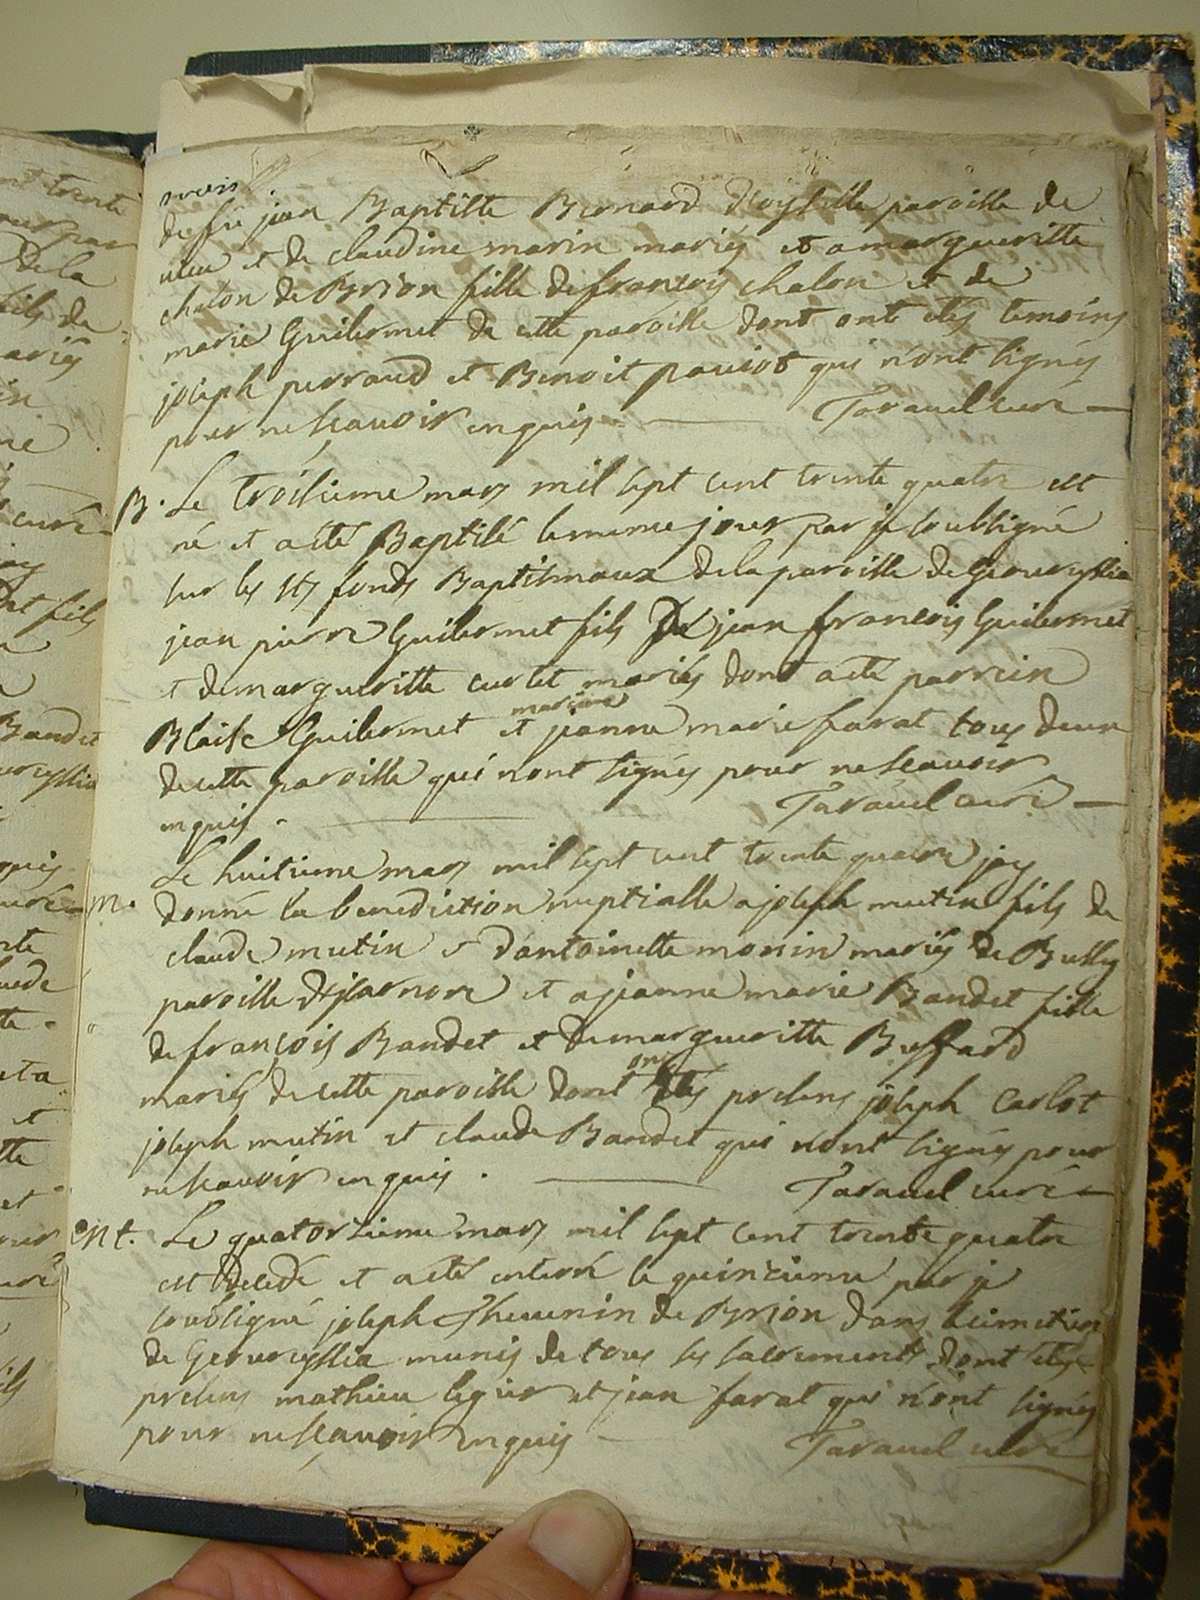 de feu jean Baptiste Bernard d'oyselle paroisse de
vieu et de claudine marin mariés et a margueritte
chalon de Brion fille de francois chalon et de
marie Guilermet de cette paroisse dont ont etés temoins
joseph perraud et Benoit pauiot qui n'ont signés
pour ne scauoir enquis Tarauel curé
B. Le troisieme mars mil sept cent trente quatre est
né et a eté Baptisé le meme jour par je soubsigné
sur les sts fonds Baptismaux de la paroisse de Geoureyssia
jean pierre Guilermet fils De jean francois Guilermet
et de margueritte curtet mariés dont a eté parrein
mareine
Blaise Guilermet et jeanne marie farat tous deux
de cette paroisse qui n'ont signés pour ne scauoir
enquis. Tarauel curé
Le huitieme mars mil sept cent trente quatre jay
m. donné la benediction nuptialle a joseph mutin fils de
claude mutin et d'antoinette monin mariés de Bussy
paroisse d'Isarnore et a jeanne marie Bandet fille
de françois Bandet et de margueritte Buffard
ont
mariés de cette paroisse dont etés presens joseph Carlot
joseph mutin et claude Bandet qui n'ont signés pour
ne scauoir enquis. Tarauel curé
ent. Le quatorzieme mars mil sept cent trente quatre
est decedé et a eté enterré le quinzieme par je
soubsigné joseph Theuenin de Brion dans le cimetiere
de Geoureyssia munis de tous les sacrements dont etés
presens mathieu legier et jean farat qui n'ont signés
pour ne scauoir enquis Tarauel curé